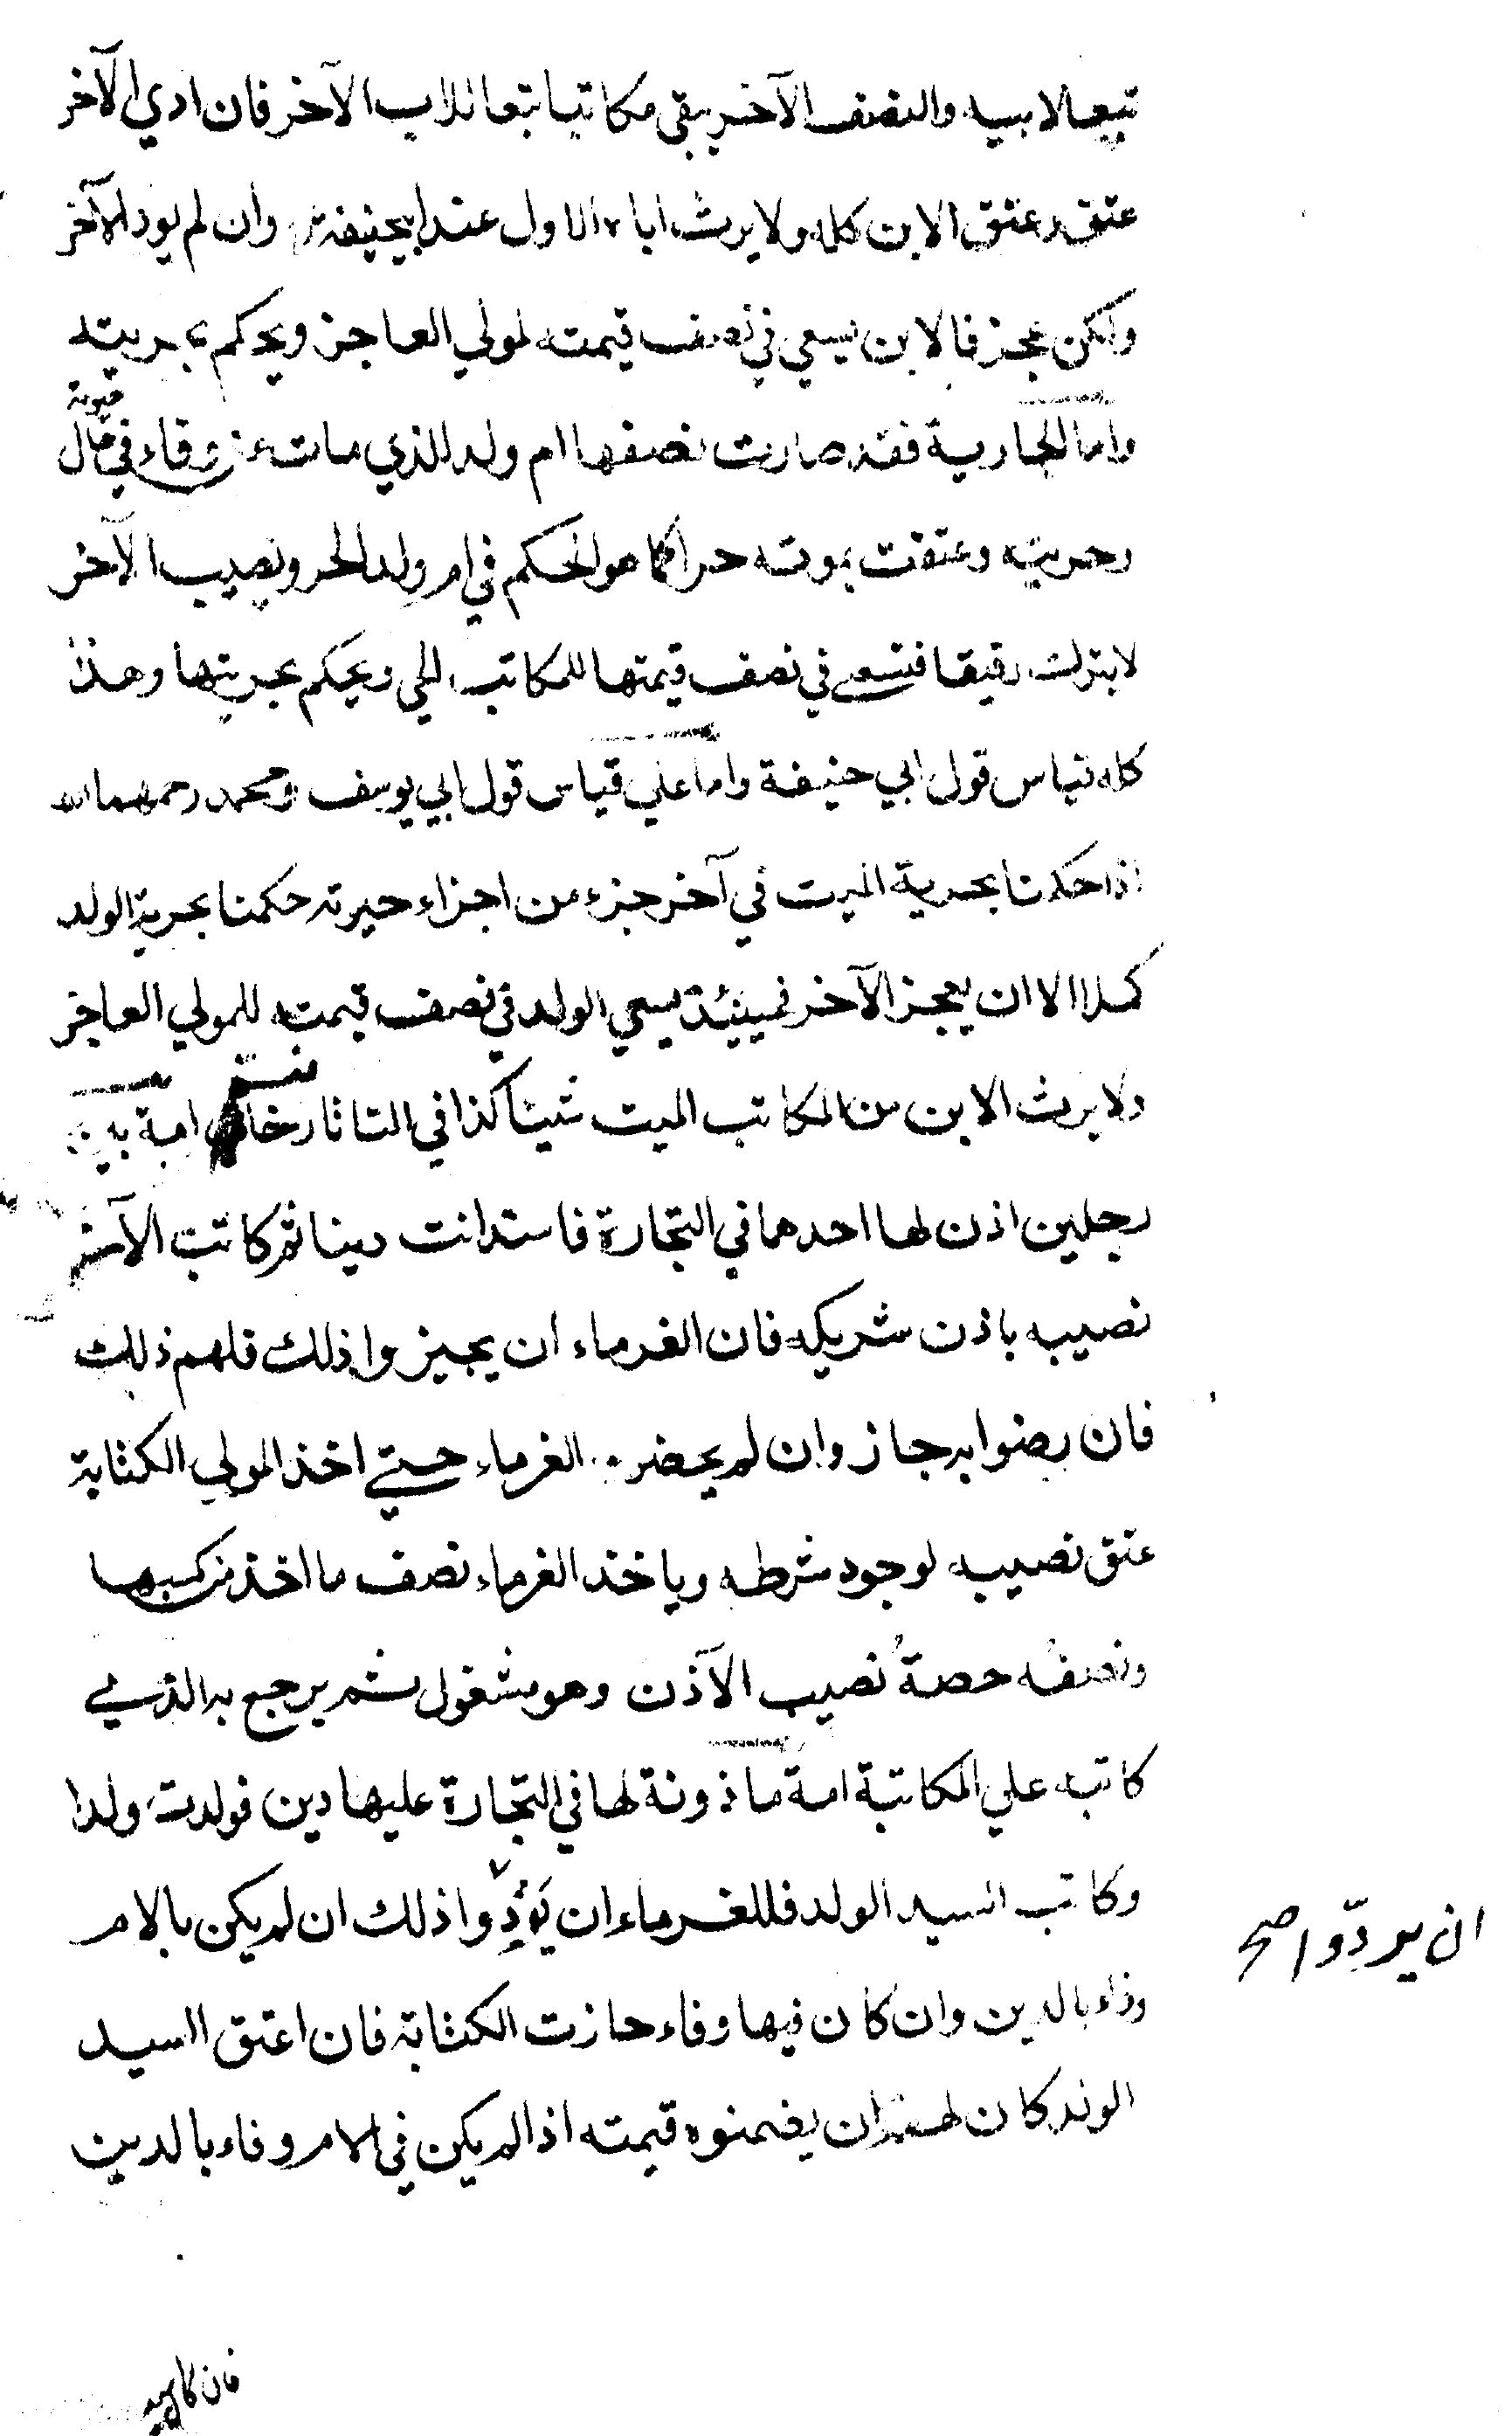 تبعا لابيه والنصف الآخر يبقى مكاتبا تبعا للاب الآخر فان ادي الآخر
عتق وعتق الابن كله ولا يرث اباه الاول عند ابيحنيفة وان لم يود الآخر
ولكن عجز فالابن يسعي في نصف قيمته لمولي العاجز ويحكم بحريته
واما الجارية فقد صارت نصفها ام ولد للذي مات عن وفاء في حال حيوته
وحريته وعتقت بموته حرا كما هو الحكم في ام ولد الحر ونصيب الآخر
لا يترك رقيقا فتسعي في نصف قيمتها للمكاتب الحي ويحكم بحريتها وهذا
كله قياس قول ابي حنيفة واما علي قياس قول ابي يوسف ومحمد رحمهما الله
اذا حكمنا بحرية الميت في آخر جزء من اجزاء حيوته حكمنا بحرية الولد
كملا الا ان يعجز الآخر فحينئذ يسعي الولد في نصف قيمته للمولي العاجز
ولا يرث الابن من المكاتب الميت شيئا كذا في التاتارخانية امة بين
رجلين اذن لها احدهما في التجارة فاستدانت دينا ثم كاتب الآخر
نصيبه باذن شريكه فان الغرماء ان يجيزوا ذلك فلهم ذلك
فان رضوا به جاز وان لم يحضر الغرماء حتي اخذ المولي الكتابة
عتق نصيبه لوجود شرطه وياخذ الغرماء نصف ما اخذ من كسبها
ونصفُه حصةُ نصيب الآذن وهو مشغول ثم يرجع به الذي
كاتبه علي المكاتبة امة ماذونة لها في التجارة عليها دين فولدت ولدا
وكاتب السيد الولد فللغرماء ان يَؤدِّوا ذلك ان لم يكن بالام
وفاء بالدين وان كان فيها وفاء جازت الكتابة فان اعتق السيد
الولد كان لهم ان يضمنوه قيمته اذا لم يكن في الام وفاء بالدين
ان يردّوا صح
فان كا